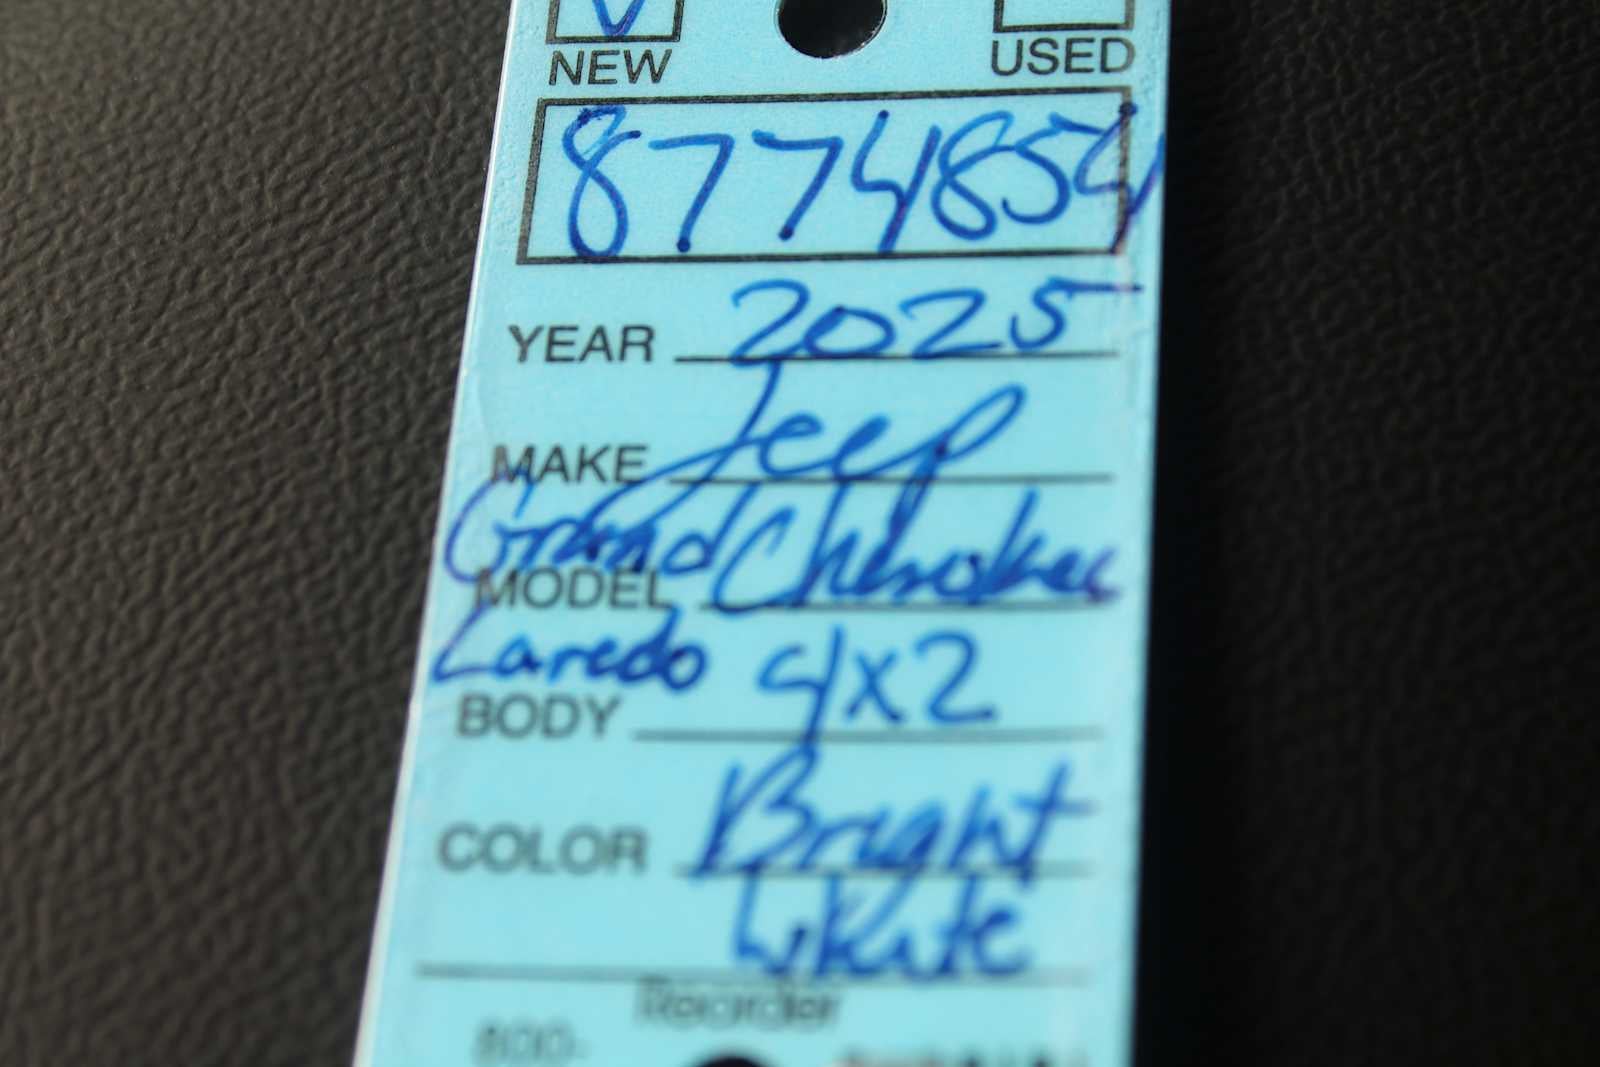 NEW USED
8774854
YEAR 2025
MAKE Jeep
Grand Cherokee
MODEL
Laredo 4x2
BODY
COLOR Bright
White
Reorder
800-